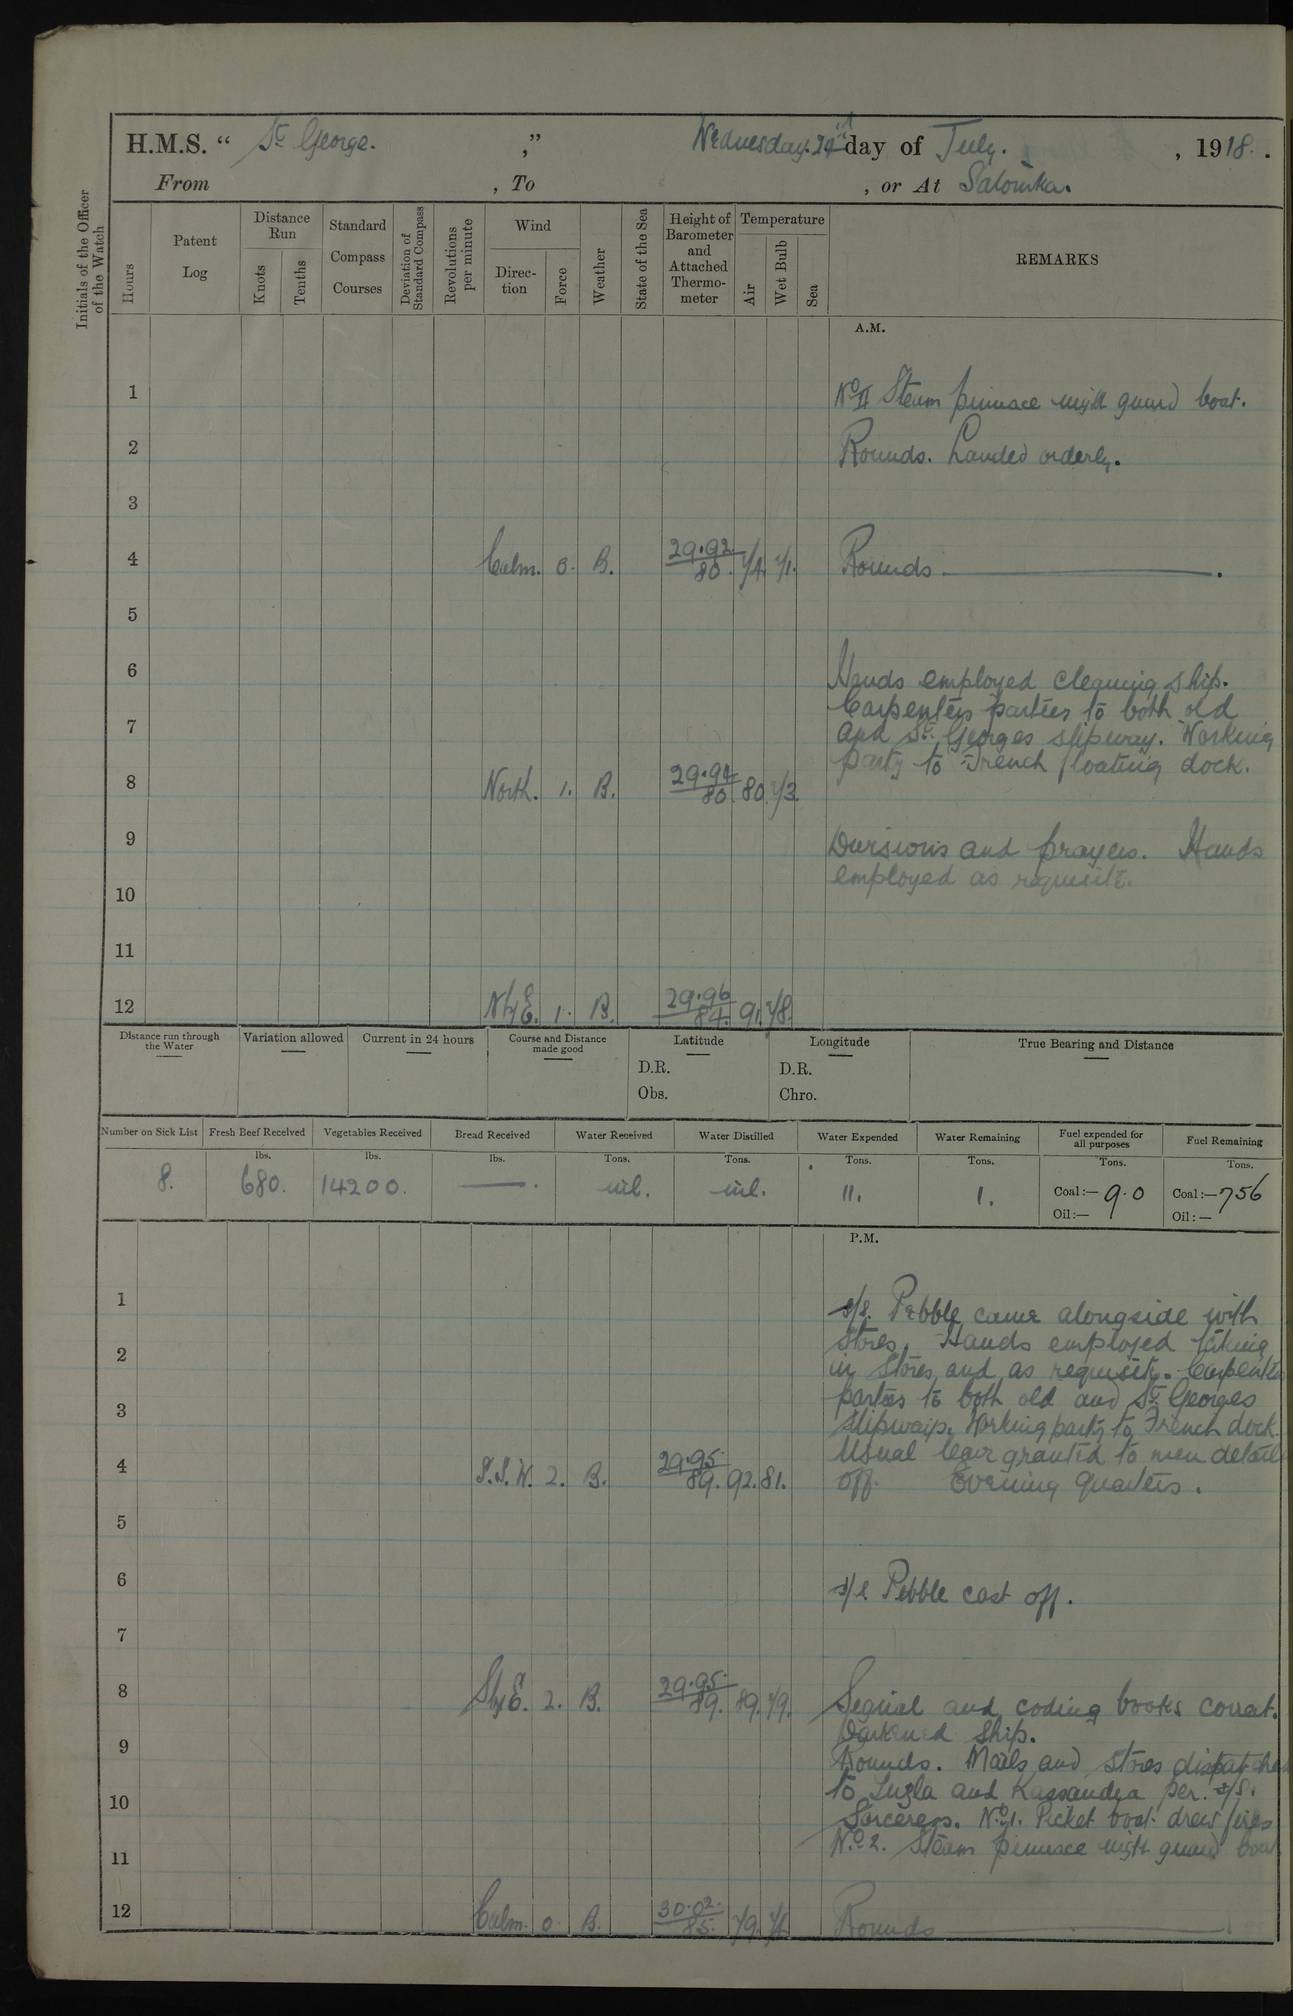 H.M.S. “ St George. ,” Wednesday. 24th day of July. , 1918.
From , To , or At Salonika.
Initials of the Officer of the Watch
Hours
Patent Log
Distance Run
Knots
Tenths
Standard Compass Courses
Deviation of Standard Compass
Revolutions per minute
Wind
Direc-tion
Force
Weather
State of the Sea
Height of Barometer and Attached Thermo-meter
Temperature
Air
Wet Bulb
Sea
REMARKS
A.M.
1 No II Steam pinnace night guard boat.
2 Rounds. Landed orderly.
3
4 Calm. 0. B. 29.92 80. 74. 71. Rounds
5
6 Hands employed cleaning ship.
Carpenters parties to both old
7 and St Georges slipway. Working
party to French floating dock.
8 North. 1. B. 29.94 80. 80. 73.
9 Divisions and prayers. Hands
employed as requisite.
10
11
12 N by E. 1. B. 29.96 84. 91. 78.
Distance run through the Water
Variation allowed
Current in 24 hours
Course and Distance made good
Latitude
D.R.
Obs.
Longitude
D.R.
Chro.
True Bearing and Distance
Number on Sick List
Fresh Beef Received
Vegetables Received
Bread Received
Water Received
Water Distilled
Water Expended
Water Remaining
Fuel expended for all purposes
Fuel Remaining
lbs. lbs. lbs. Tons. Tons. Tons. Tons. Tons. Tons.
8. 680. 14200. —. nil. nil. 11. 1. Coal:— 9.0 Coal:—756
Oil:— Oil:—
P.M.
1 s/s. Pebble came alongside with
stores. Hands employed taking
2 in stores and as requisite. Carpenters
parties to both old and St Georges
3 slipways. Working party to French dock.
Usual leave granted to men detailed
4 S.S.W. 2. B. 29.95. 89. 92. 81. off. Evening quarters.
5
6 s/s. Pebble cast off.
7
8 S by E. 2. B. 29.95. 89. 89. 79. Signal and coding books correct.
Darkened ship.
9 Rounds. Mails and stores dispatched
to Tuzla and Kassandra per. s/s.
10 Sorceress. No 1. Picket boat drew fires
No 2. Steam pinnace night guard boat.
11
12 Calm. 0. B. 30.02. 85. 79. Rounds